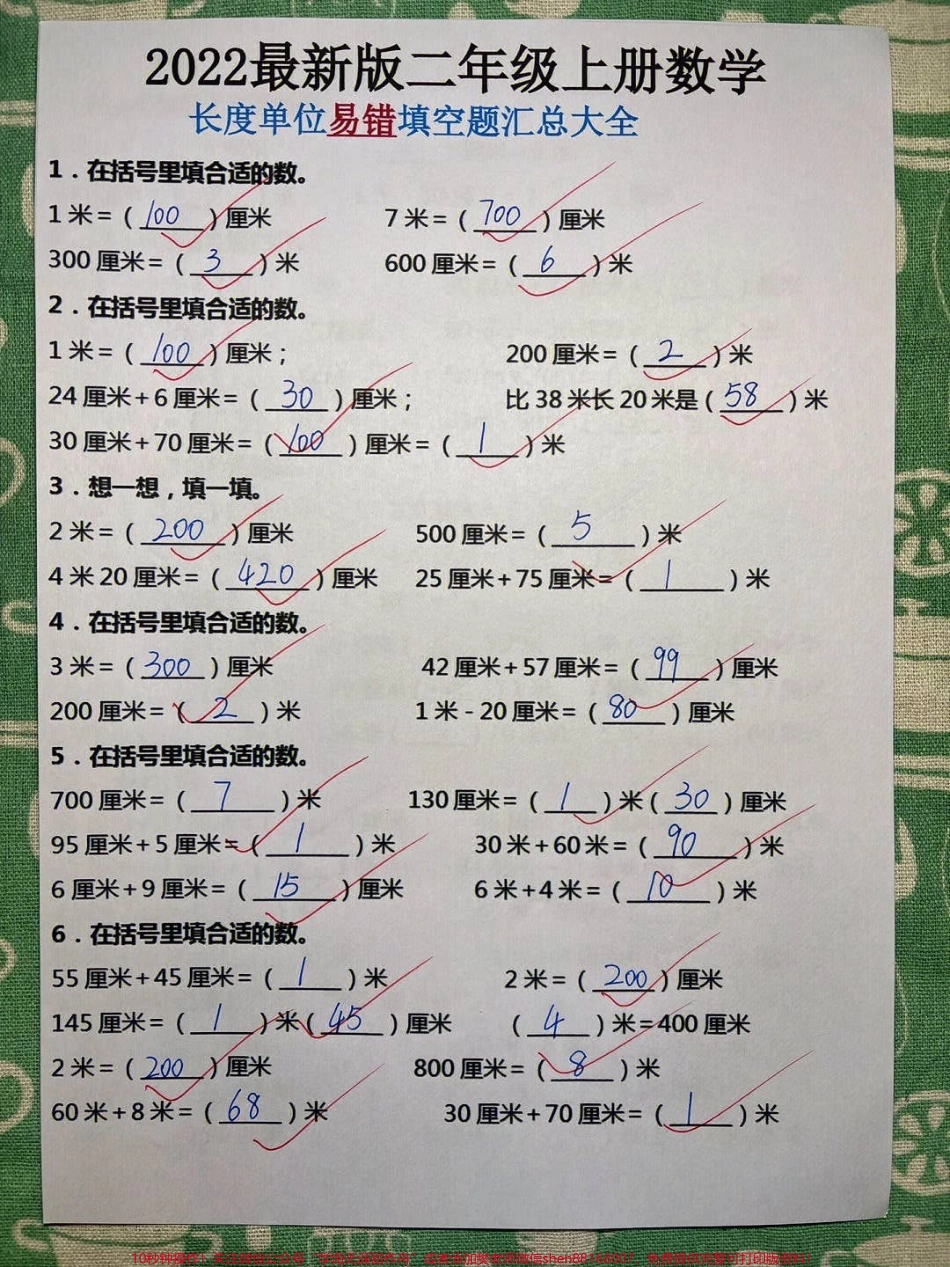 2022最新版二年级上册数学
长度单位易错填空题汇总大全
1．在括号里填合适的数。
1米=（100）厘米 7米=（700）厘米
300厘米=（3）米 600厘米=（6）米
2．在括号里填合适的数。
1米=（100）厘米； 200厘米=（2）米
24厘米+6厘米=（30）厘米； 比38米长20米是（58）米
30厘米+70厘米=（100）厘米=（1）米
3．想一想，填一填。
2米=（200）厘米 500厘米=（5）米
4米20厘米=（420）厘米 25厘米+75厘米=（1）米
4．在括号里填合适的数。
3米=（300）厘米 42厘米+57厘米=（99）厘米
200厘米=（2）米 1米-20厘米=（80）厘米
5．在括号里填合适的数。
700厘米=（7）米 130厘米=（1）米（30）厘米
95厘米+5厘米=（1）米 30米+60米=（90）米
6厘米+9厘米=（15）厘米 6米+4米=（10）米
6．在括号里填合适的数。
55厘米+45厘米=（1）米 2米=（200）厘米
145厘米=（1）米（45）厘米 （4）米=400厘米
2米=（200）厘米 800厘米=（8）米
60米+8米=（68）米 30厘米+70厘米=（1）米